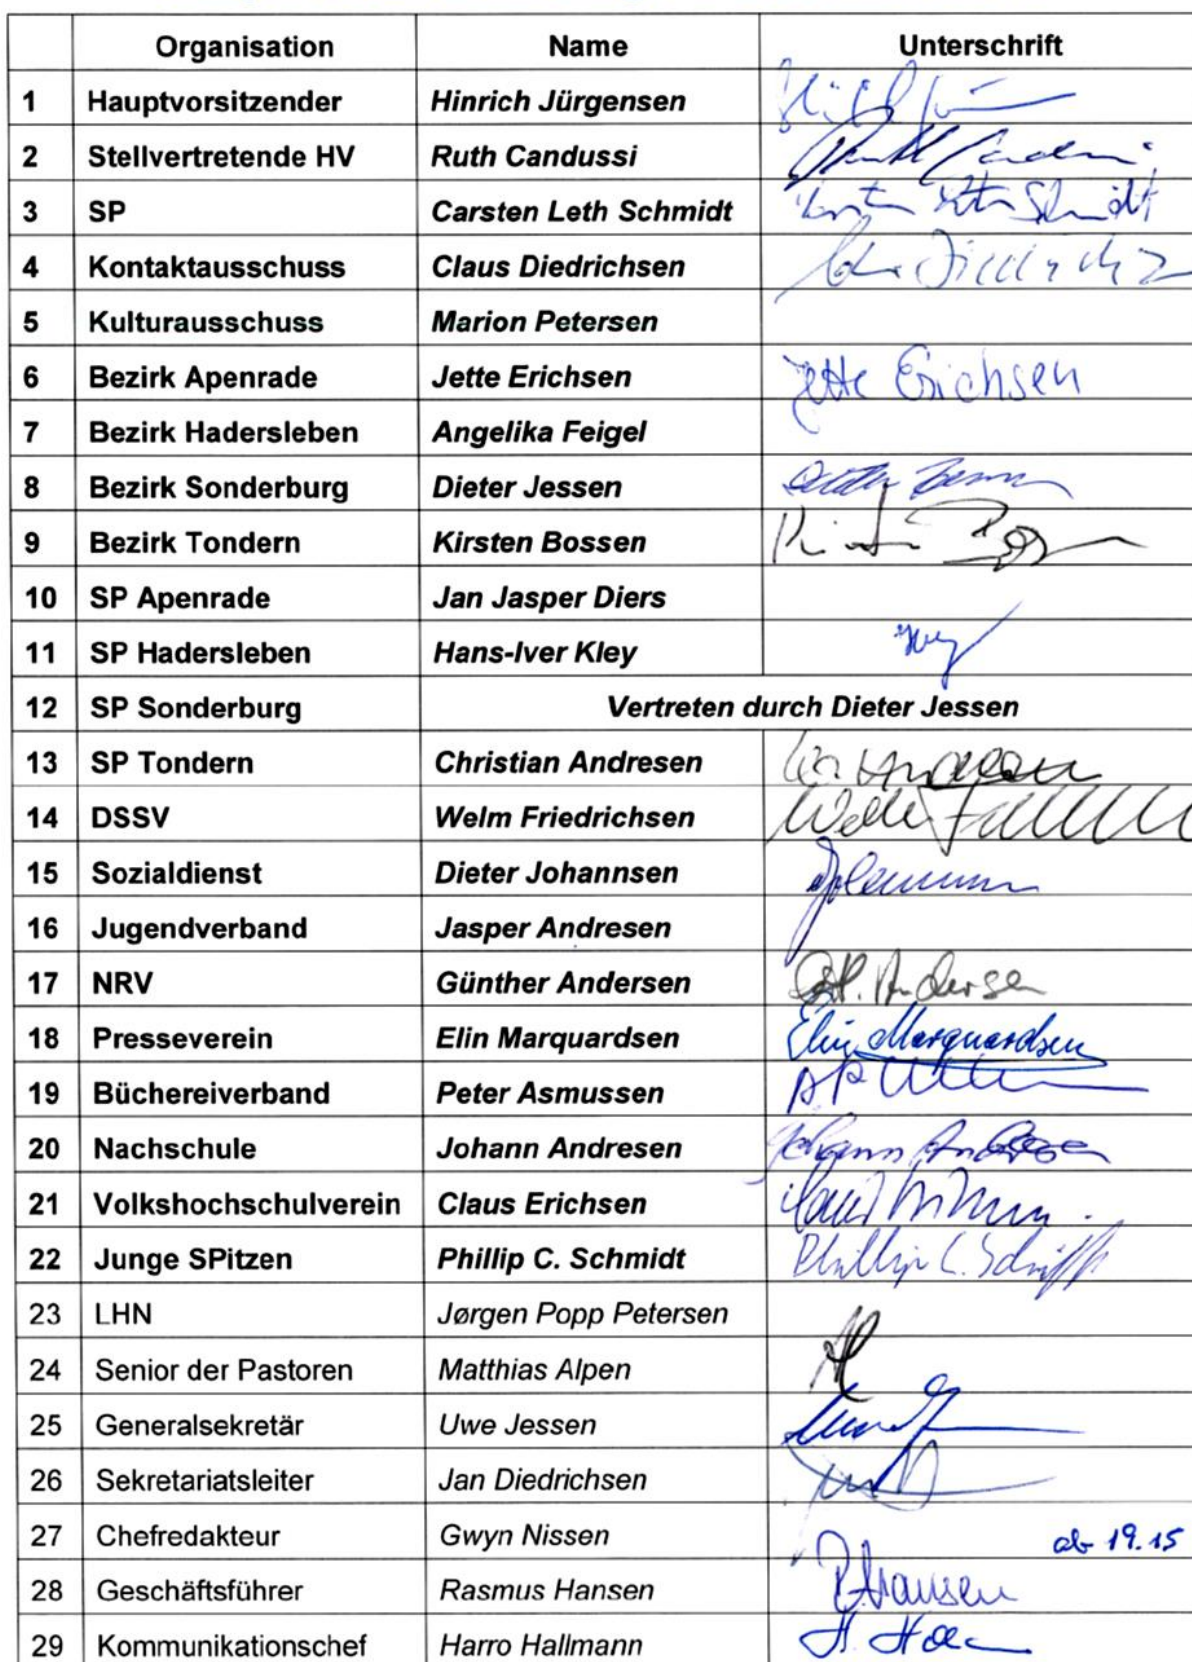 Organisation Name Unterschrift
1 Hauptvorsitzender Hinrich Jürgensen
2 Stellvertretende HV Ruth Candussi
3 SP Carsten Leth Schmidt
4 Kontaktausschuss Claus Diedrichsen
5 Kulturausschuss Marion Petersen
6 Bezirk Apenrade Jette Erichsen Jette Erichsen
7 Bezirk Hadersleben Angelika Feigel
8 Bezirk Sonderburg Dieter Jessen
9 Bezirk Tondern Kirsten Bossen
10 SP Apenrade Jan Jasper Diers
11 SP Hadersleben Hans-Iver Kley
12 SP Sonderburg Vertreten durch Dieter Jessen
13 SP Tondern Christian Andresen
14 DSSV Welm Friedrichsen
15 Sozialdienst Dieter Johannsen
16 Jugendverband Jasper Andresen
17 NRV Günther Andersen Andersen
18 Presseverein Elin Marquardsen Elin Marquardsen
19 Büchereiverband Peter Asmussen
20 Nachschule Johann Andresen Johann Andresen
21 Volkshochschulverein Claus Erichsen
22 Junge SPitzen Phillip C. Schmidt Phillip C. Schmidt
23 LHN Jørgen Popp Petersen
24 Senior der Pastoren Matthias Alpen
25 Generalsekretär Uwe Jessen
26 Sekretariatsleiter Jan Diedrichsen
27 Chefredakteur Gwyn Nissen ab 19.15
28 Geschäftsführer Rasmus Hansen R Hansen
29 Kommunikationschef Harro Hallmann